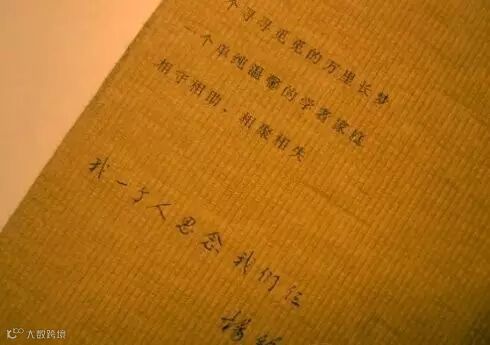 个寻寻觅觅的万里长梦
一个单纯温馨的学者家庭
相守相助，相聚相失
我一个人思念我们仨
杨
大数跨境